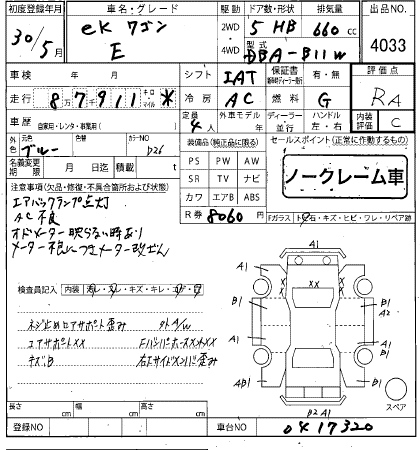 初度登録年月 車名・グレード 駆動 ドア数・形状 排気量 出品NO.
30/5月 ek ワゴン E 2WD 4WD 5 HB 660 cc 4033
型式 DBA-B11W
車検 年 月 シフト IAT 保証書 有・無 評価点
走行 8 7 9 1 1 キロ マイル * 冷房 AC 燃料 G RA
車歴 自家用・レンタ・事業用( ) 定員 4人 外車モデル 年 ディーラー 並行 ハンドル 左・右 内装評価 C
元色 ブルー 色替 カラーNO D26 装備品(純正品に限る) セールスポイント(正常に作動するもの)
名義変更期限 月 日迄 積載量 t PS PW AW
注意事項(欠品・修復・不具合箇所および状態) SR TV ナビ
ノークレーム車
エアバックランプ点灯 カワ エアB ABS
AC不良 R券 8060円
Fガラス 石・キズ・ヒビ・ワレ・リペア跡
オドメーター映らない時あり
メーター不良につきメーター改ざん
検査員記入 内装
ネジ止めロアサポート歪み 外A/W
コアサポートXX
キズB 右Fサイドメンバ歪み
A1
A1 A1
X X
B1 B1 A2
A1 A1
AB1 B1
B2 A1
スペア
長さ cm 幅 cm 高さ cm
登録NO 車台NO 0417320